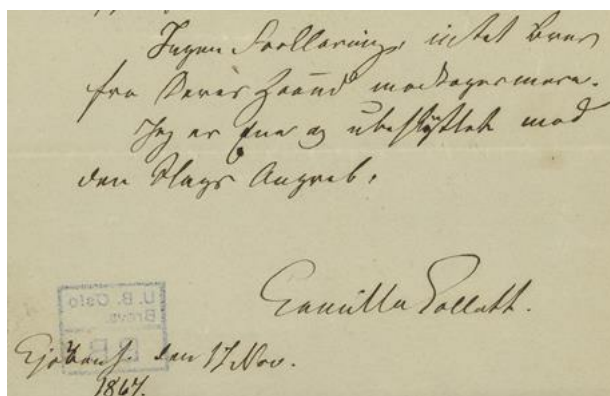 Ingen Forklaring, intet Brev
fra Deres Haand modtages mere.
Jeg er Ene og ubeskyttet mod
den Slags Angreb.
Camilla Collett.
U. B. Oslo
Brevs.
BB
Kjøbenh. den 17 Nov.
1867.